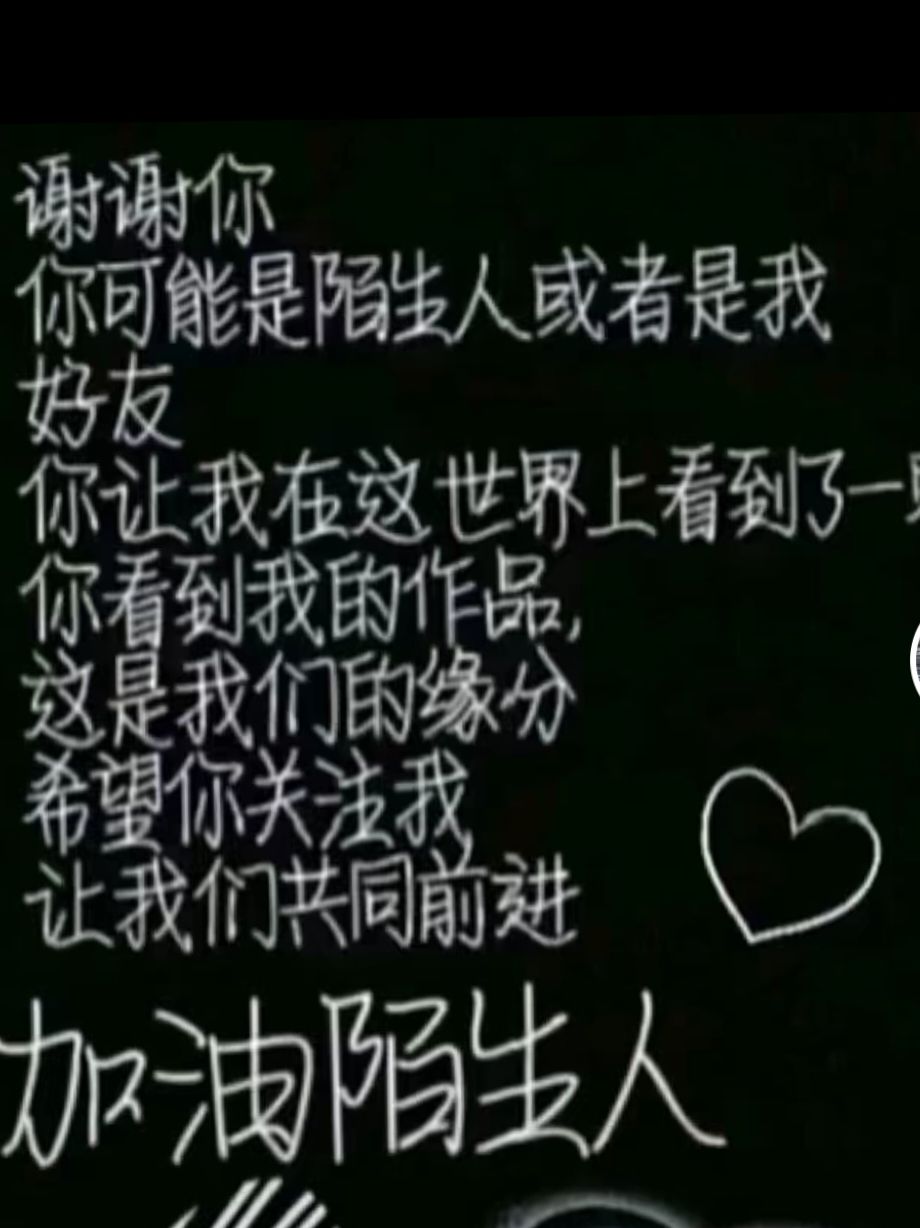 谢谢你
你可能是陌生人或者是我
好友
你让我在这世界上看到了一
你看到我的作品,
这是我们的缘分
希望你关注我
让我们共同前进
加油陌生人